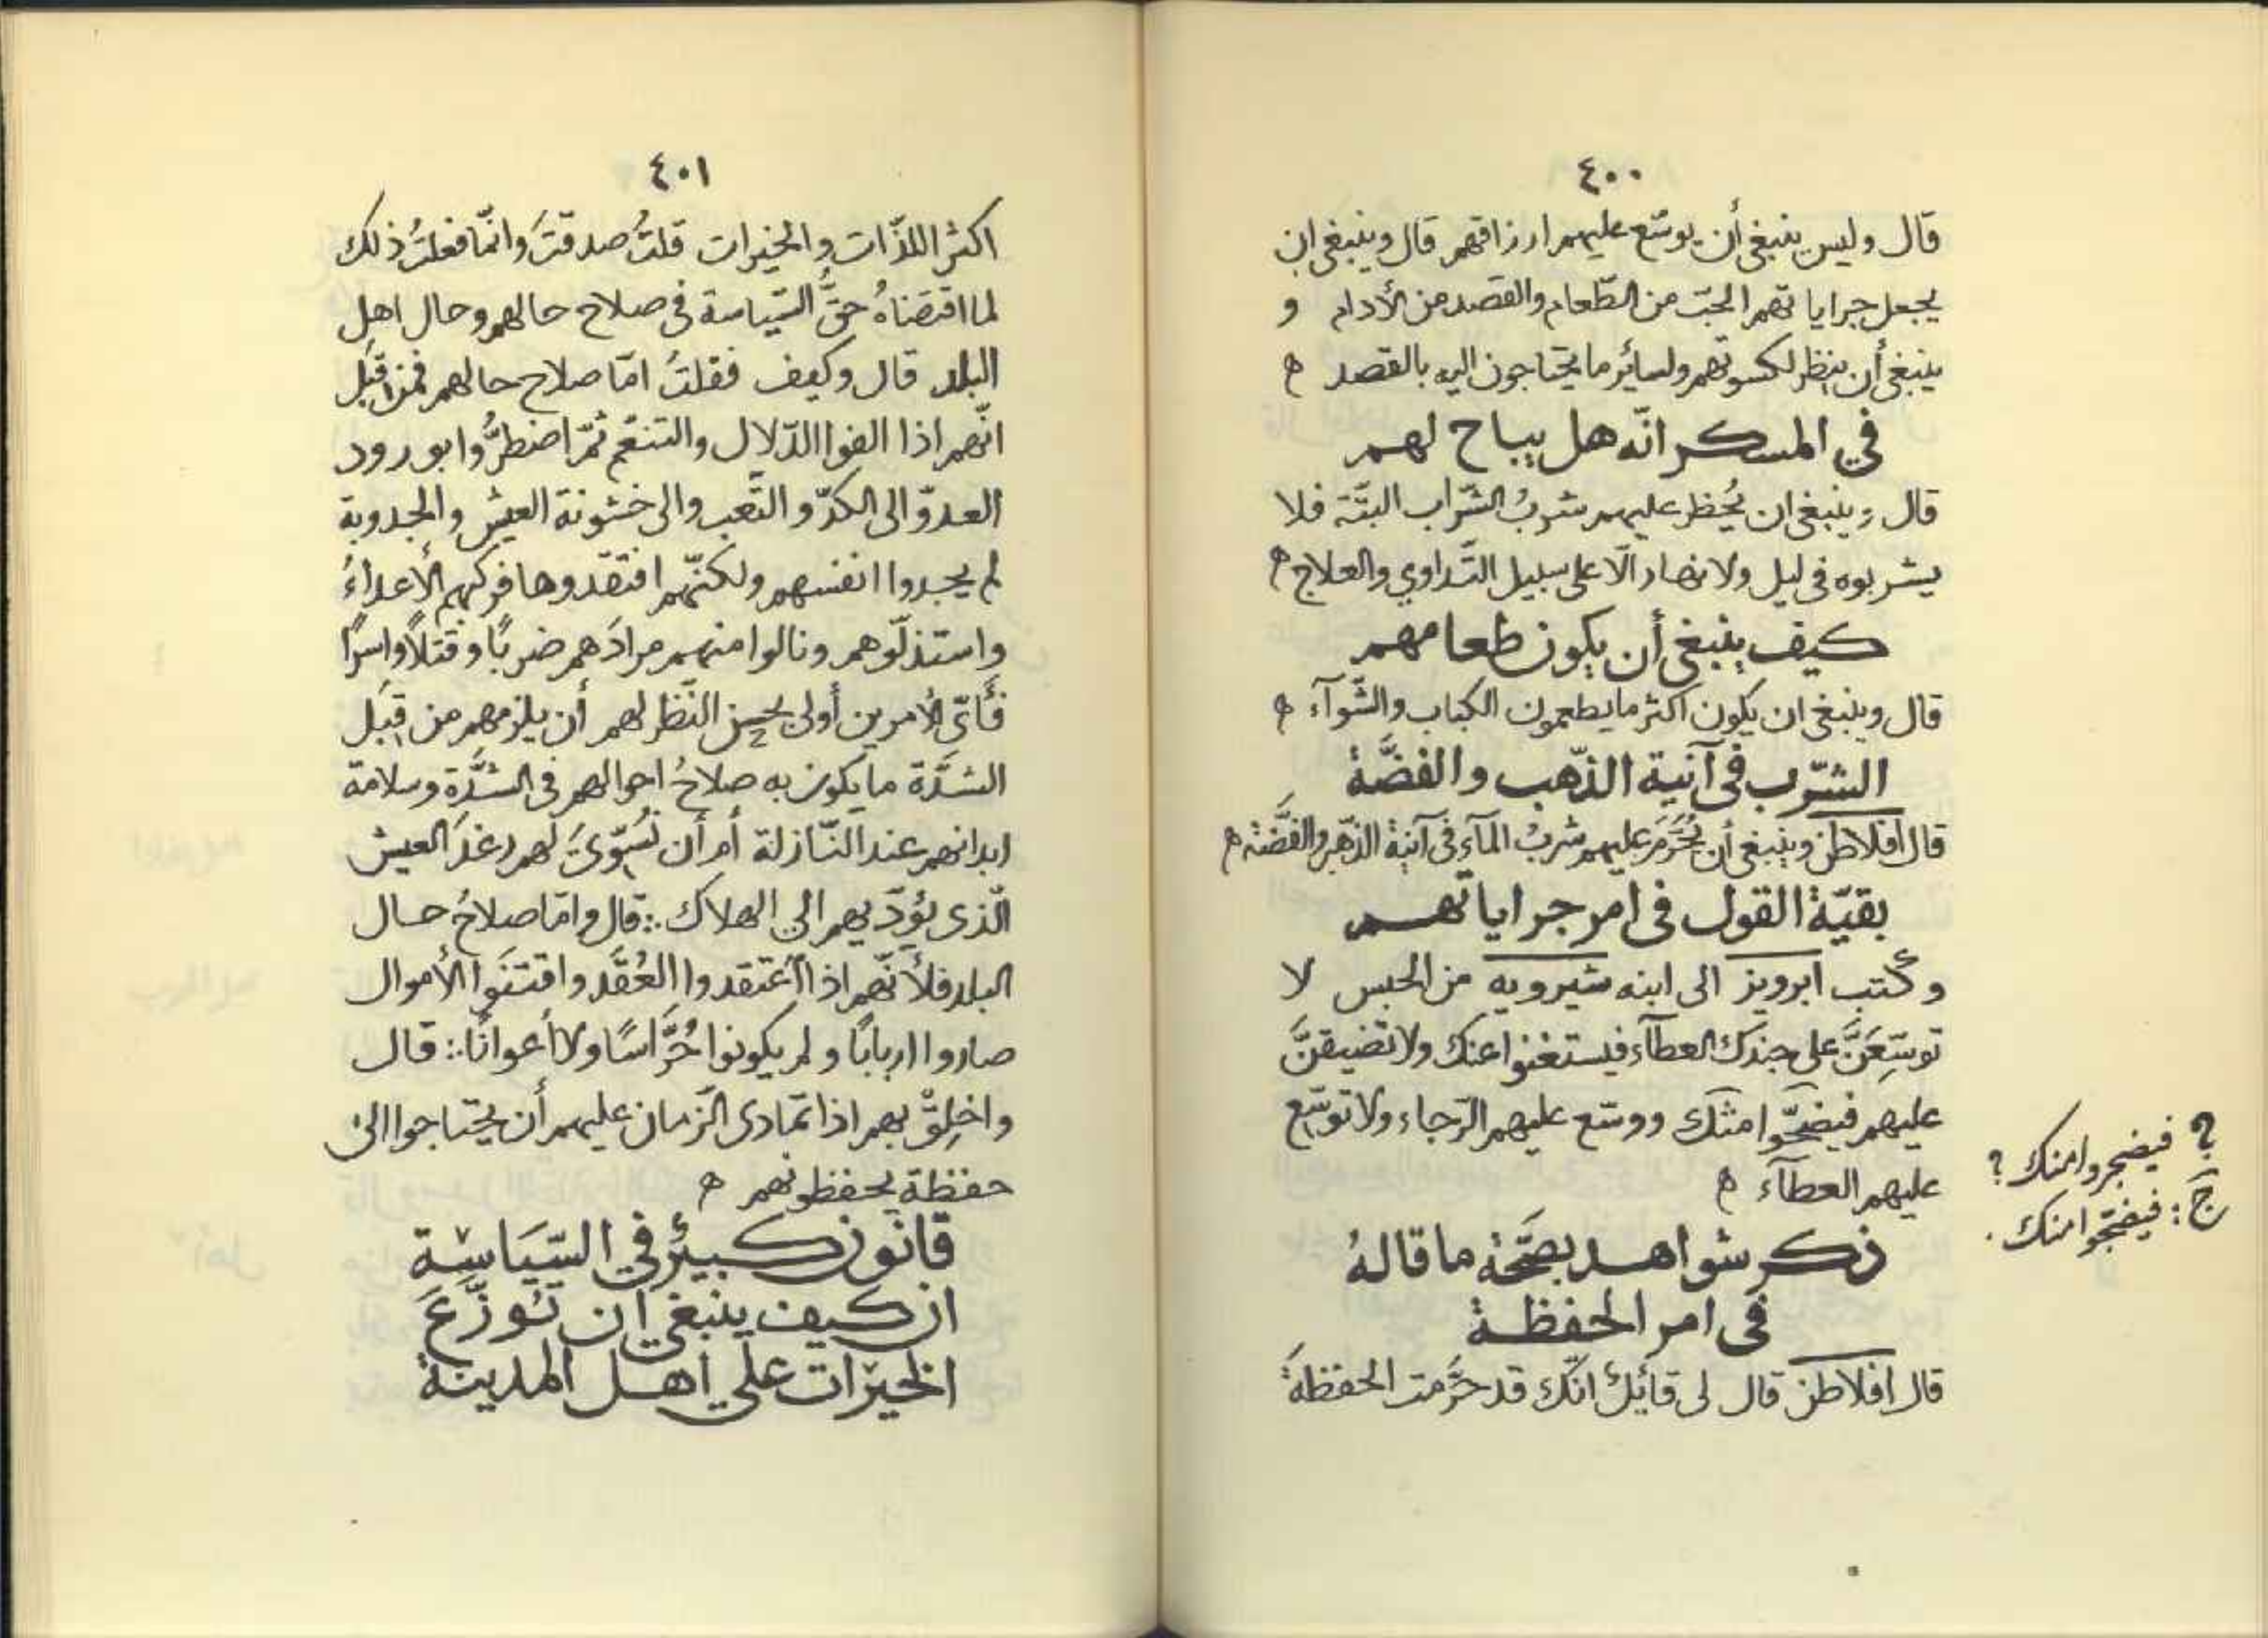 ٤٠٠
قال وليس ينبغي أن يوسّع عليهم ارزاقهم قال وينبغي ان
يجعل جراياتهم الحبّ من الطّعام والقصد من الأدام و
ينبغي أن ينظر لكسوتهم ولسايُر ما يحتاجون اليه بالقصد ه
في المسكر انّه هل يباح لهم
قال وينبغي ان يُحظر عليهم شربُ الشّراب البتّة فلا
يشربوه في ليل ولا نهار الّا على سبيل التّداوي والعلاج ه
كيف ينبغي أن يكون طعامهم
قال وينبغي ان يكون اكثر ما يطعمون الكباب والشّوآء ه
الشّرب في آنية الذّهب والفضّة
قال افلاطن وينبغي أن يُحَرَّمَ عليهم شربُ المآء في آنية الذّهب والفضّة ه
بقيّة القول في امر جراياتهم
وكتب ابرويز الى ابنه شيرويه من الحبس لا
توسّعَنَّ على جندك العطآء فيستغنوا عنك ولا تضيقنّ
عليهم فيضجّوا منك ووسّع عليهم الرّجاء ولا توسّع
عليهم العطآء ه
؟ فيضجروا منك ؟
ج : فيضجّوا منك .
ذكر شواهد بصحّة ما قالهُ
في امر الحفظة
قال افلاطن قال لى قائلٌ انّك قد حرّمت الحفظةَ
٤٠١
اكثر اللذّات والخيرات قلتُ صدقتَ وانّما فعلتُ ذلك
لما اقتضاهُ حقُّ السّياسة في صلاح حالهم وحال اهل
البلد قال وكيف فقلتُ امّا صلاح حالهم فمن قِبَل
انّهم اذا الفوا الدّلال والتنعّم ثمّ اضطرُّوا بورود
العدوّ الى الكدّ والتّعب والى خشونة العيش والجدوبة
لم يجدوا انفسهم ولكنّهم افتقدوها فركبهم الأعداءُ
واستذلّوهم ونالوا منهم مرادَهم ضربًا وقتلاً واسرًا
فأىّ الأمرين أولى بحسن النّظر لهم أن يلزمهم من قِبَل
الشدَّة ما يكون به صلاحُ احوالهم في الشدَّة وسلامة
ابدانهم عند النّازلة أم أن نُسَوّىَ لهم رغدَ العيش
الّذى يؤدّيهم الى الهلاك :. قال وامّا صلاحُ حال
البلد فلأنّهم اذا اعتقدوا العُقَد واقتنَوا الأموال
صاروا اربابًا ولم يكونوا حُرَّاسًا ولا أعوانًا :. قال
واخلِقْ بهم اذا تمادى الزّمان عليهم أن يحتاجوا الى
حفظة يحفظونهم ه
قانون كبيرٌ في السّيَاسَة
ان كيف ينبغي ان تُوَزَّعَ
الخيرات على اهل المدينة